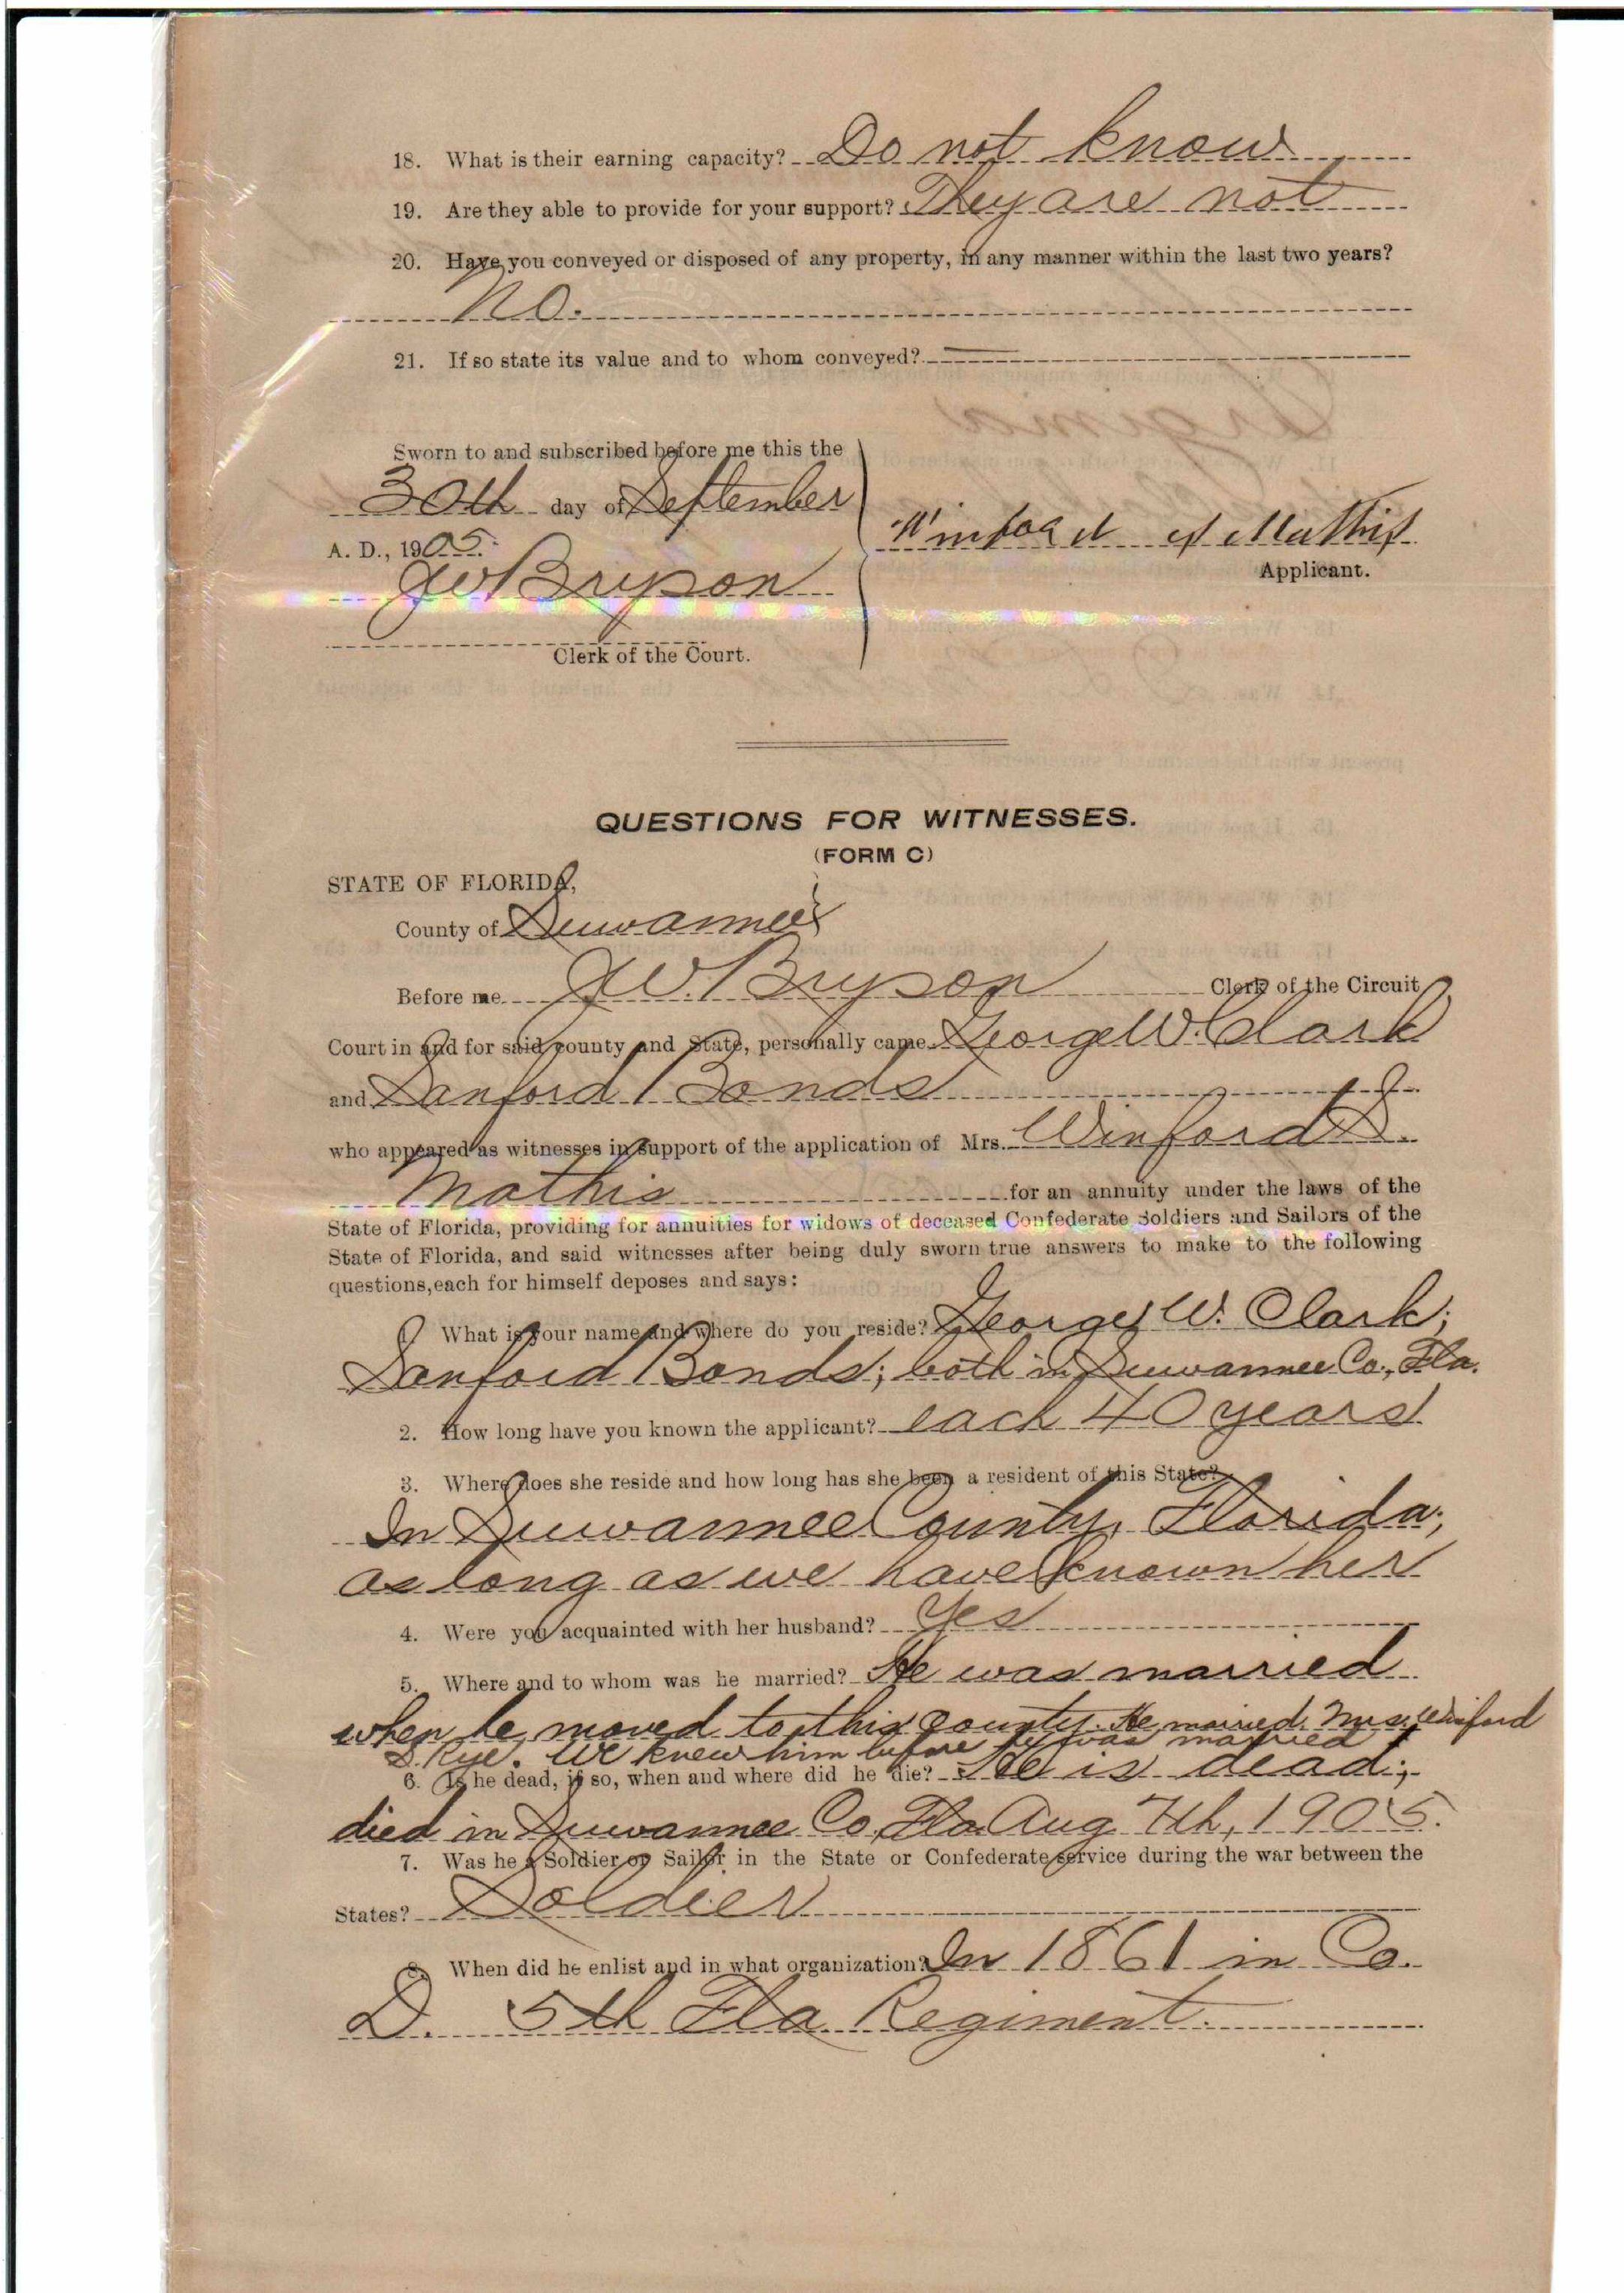 18. What is their earning capacity? Do not know
19. Are they able to provide for your support? They are not
20. Have you conveyed or disposed of any property, in any manner within the last two years?
No.
21. If so state its value and to whom conveyed?
Sworn to and subscribed before me this the
30th day of September
A. D., 1905.
JW Bryson
Clerk of the Court.
Winford Mathis
Applicant.
QUESTIONS FOR WITNESSES.
(FORM C)
STATE OF FLORIDA,
County of Suwannee
Before me J W. Bryson Clerk of the Circuit
Court in and for said county and State, personally came George W. Clark
and Sanford Bonds
who appeared as witnesses in support of the application of Mrs. Winford S.
Mathis for an annuity under the laws of the
State of Florida, providing for annuities for widows of deceased Confederate Soldiers and Sailors of the
State of Florida, and said witnesses after being duly sworn true answers to make to the following
questions, each for himself deposes and says:
1 What is your name and where do you reside? George W. Clark;
Sanford Bonds; both in Suwannee Co., Fla.
2. How long have you known the applicant? each 40 years
3. Where does she reside and how long has she been a resident of this State?
In Suwannee County, Florida;
as long as we have known her
4. Were you acquainted with her husband? Yes
5. Where and to whom was he married? He was married
when he moved to this county. He married Mrs. Winford
S. Rye. We knew him before he was married
6. Is he dead, if so, when and where did he die? He is dead;
died in Suwannee Co, Fla Aug 7th, 1905.
7. Was he a Soldier or Sailor in the State or Confederate service during the war between the
States? Soldier
8. When did he enlist and in what organization? In 1861 in Co.
D. 5th Fla. Regiment.